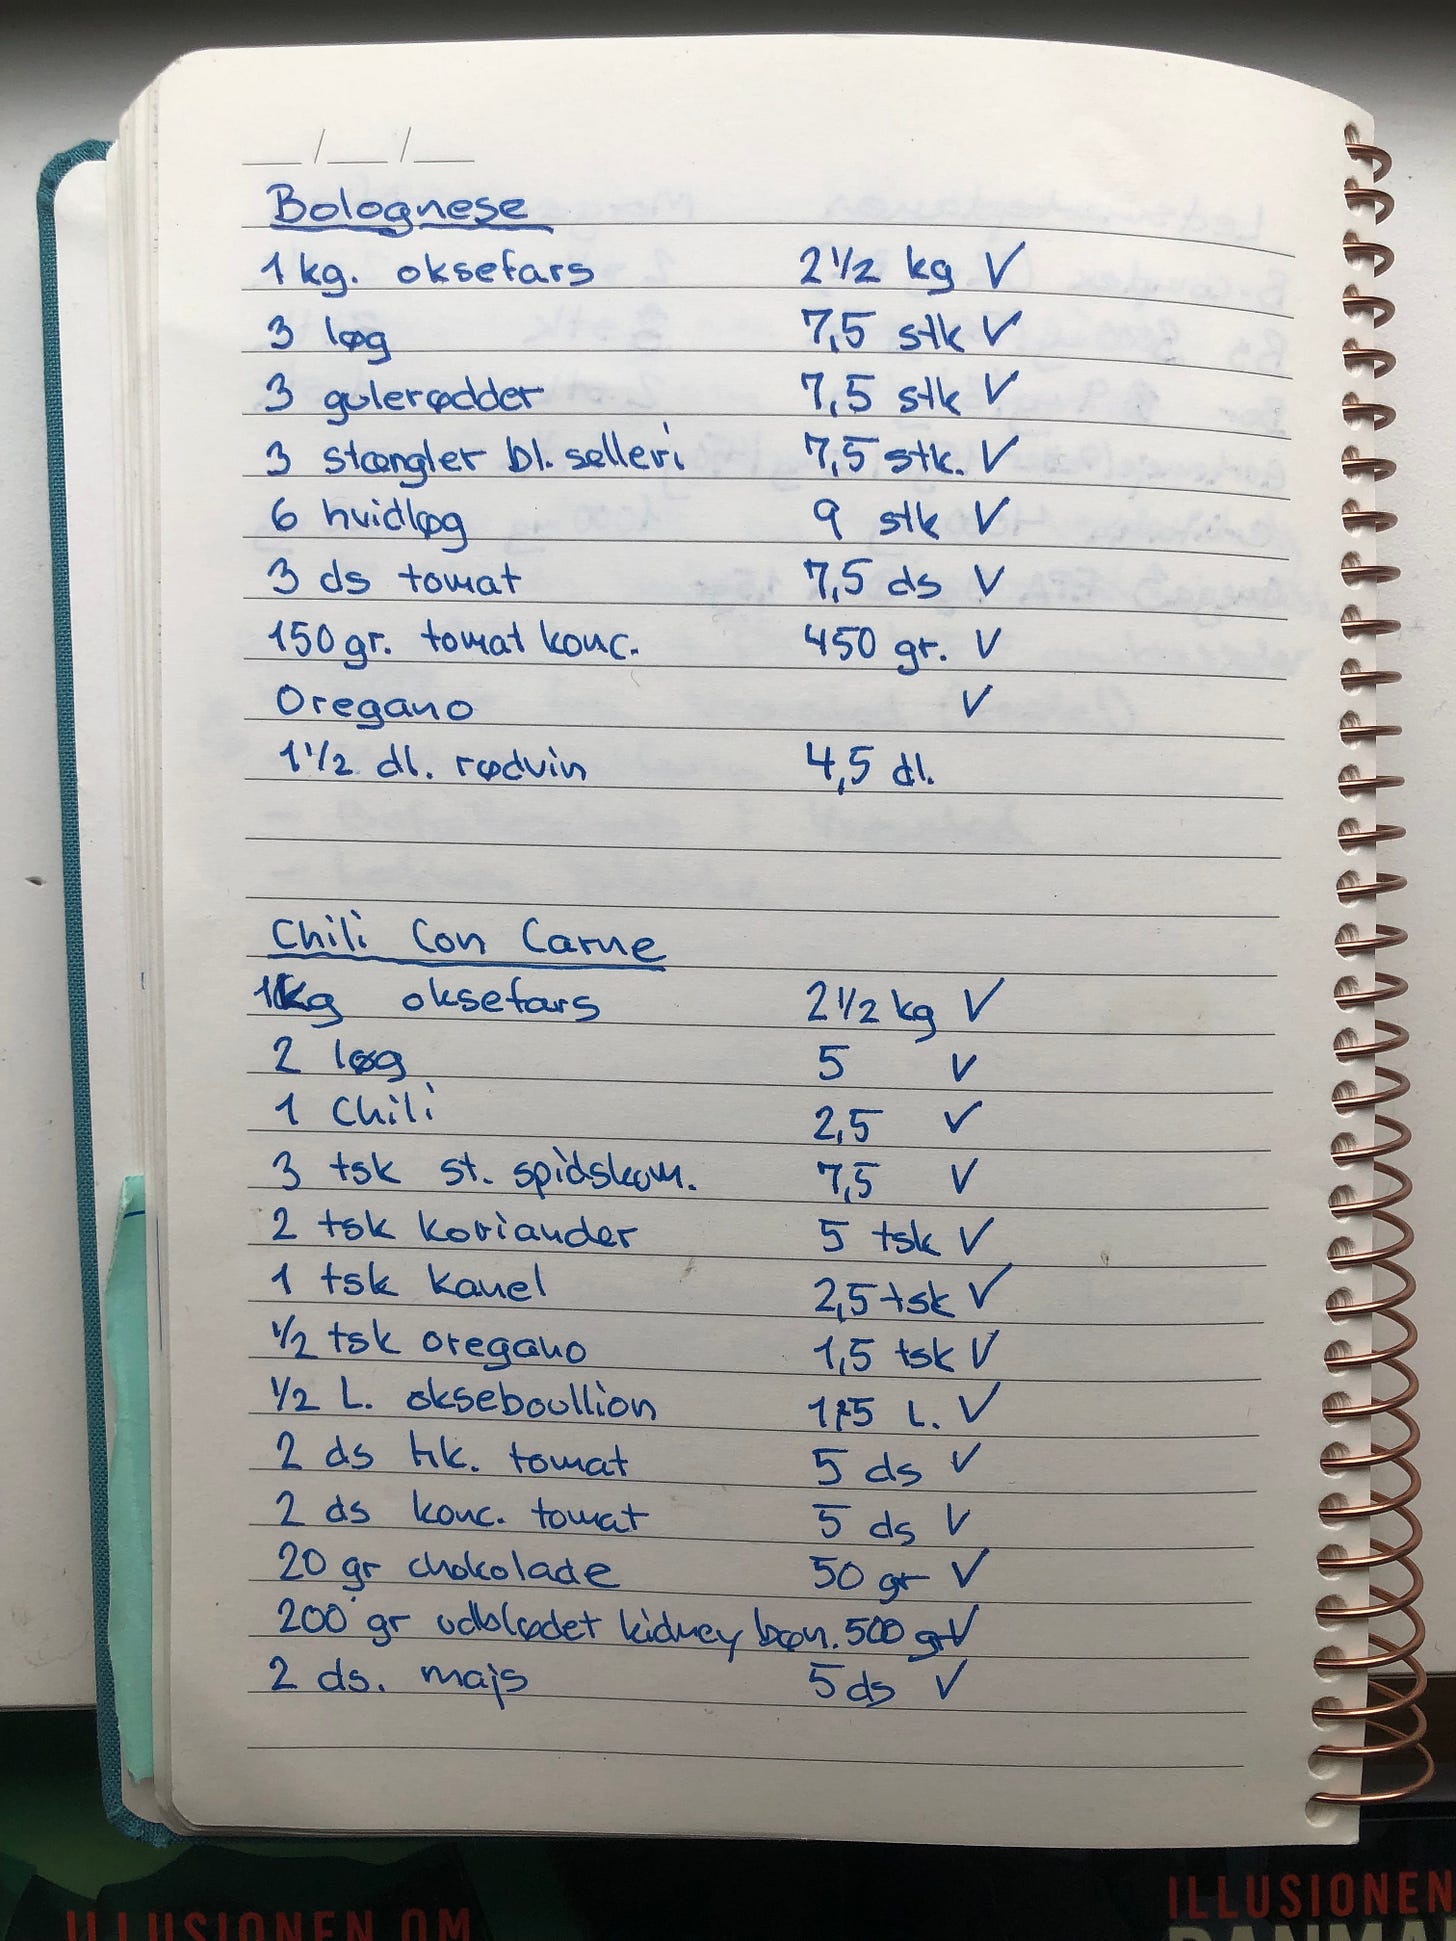 __/__/__
Bolognese
1 kg. oksefars 2 1/2 kg ✓
3 løg 7,5 stk ✓
3 gulerødder 7,5 stk ✓
3 stængler bl. selleri 7,5 stk. ✓
6 hvidløg 9 stk ✓
3 ds tomat 7,5 ds ✓
150 gr. tomat konc. 450 gr. ✓
Oregano ✓
1 1/2 dl. rødvin 4,5 dl.
Chili Con Carne
1 kg oksefars 2 1/2 kg ✓
2 løg 5 ✓
1 Chili 2,5 ✓
3 tsk st. spidskom. 7,5 ✓
2 tsk koriander 5 tsk ✓
1 tsk kanel 2,5 tsk ✓
1/2 tsk oregano 1,5 tsk ✓
1/2 L. okseboullion 1,5 L. ✓
2 ds hk. tomat 5 ds ✓
2 ds konc. tomat 5 ds ✓
20 gr chokolade 50 gr ✓
200 gr udblødet kidney bøn. 500 gr ✓
2 ds. majs 5 ds ✓
ILLUSIONEN OM
ILLUSIONEN